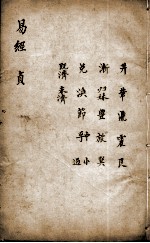 井革鼎震艮
漸歸妹豐旅巽
兌渙節中孚小過
既濟未濟
易經 貞